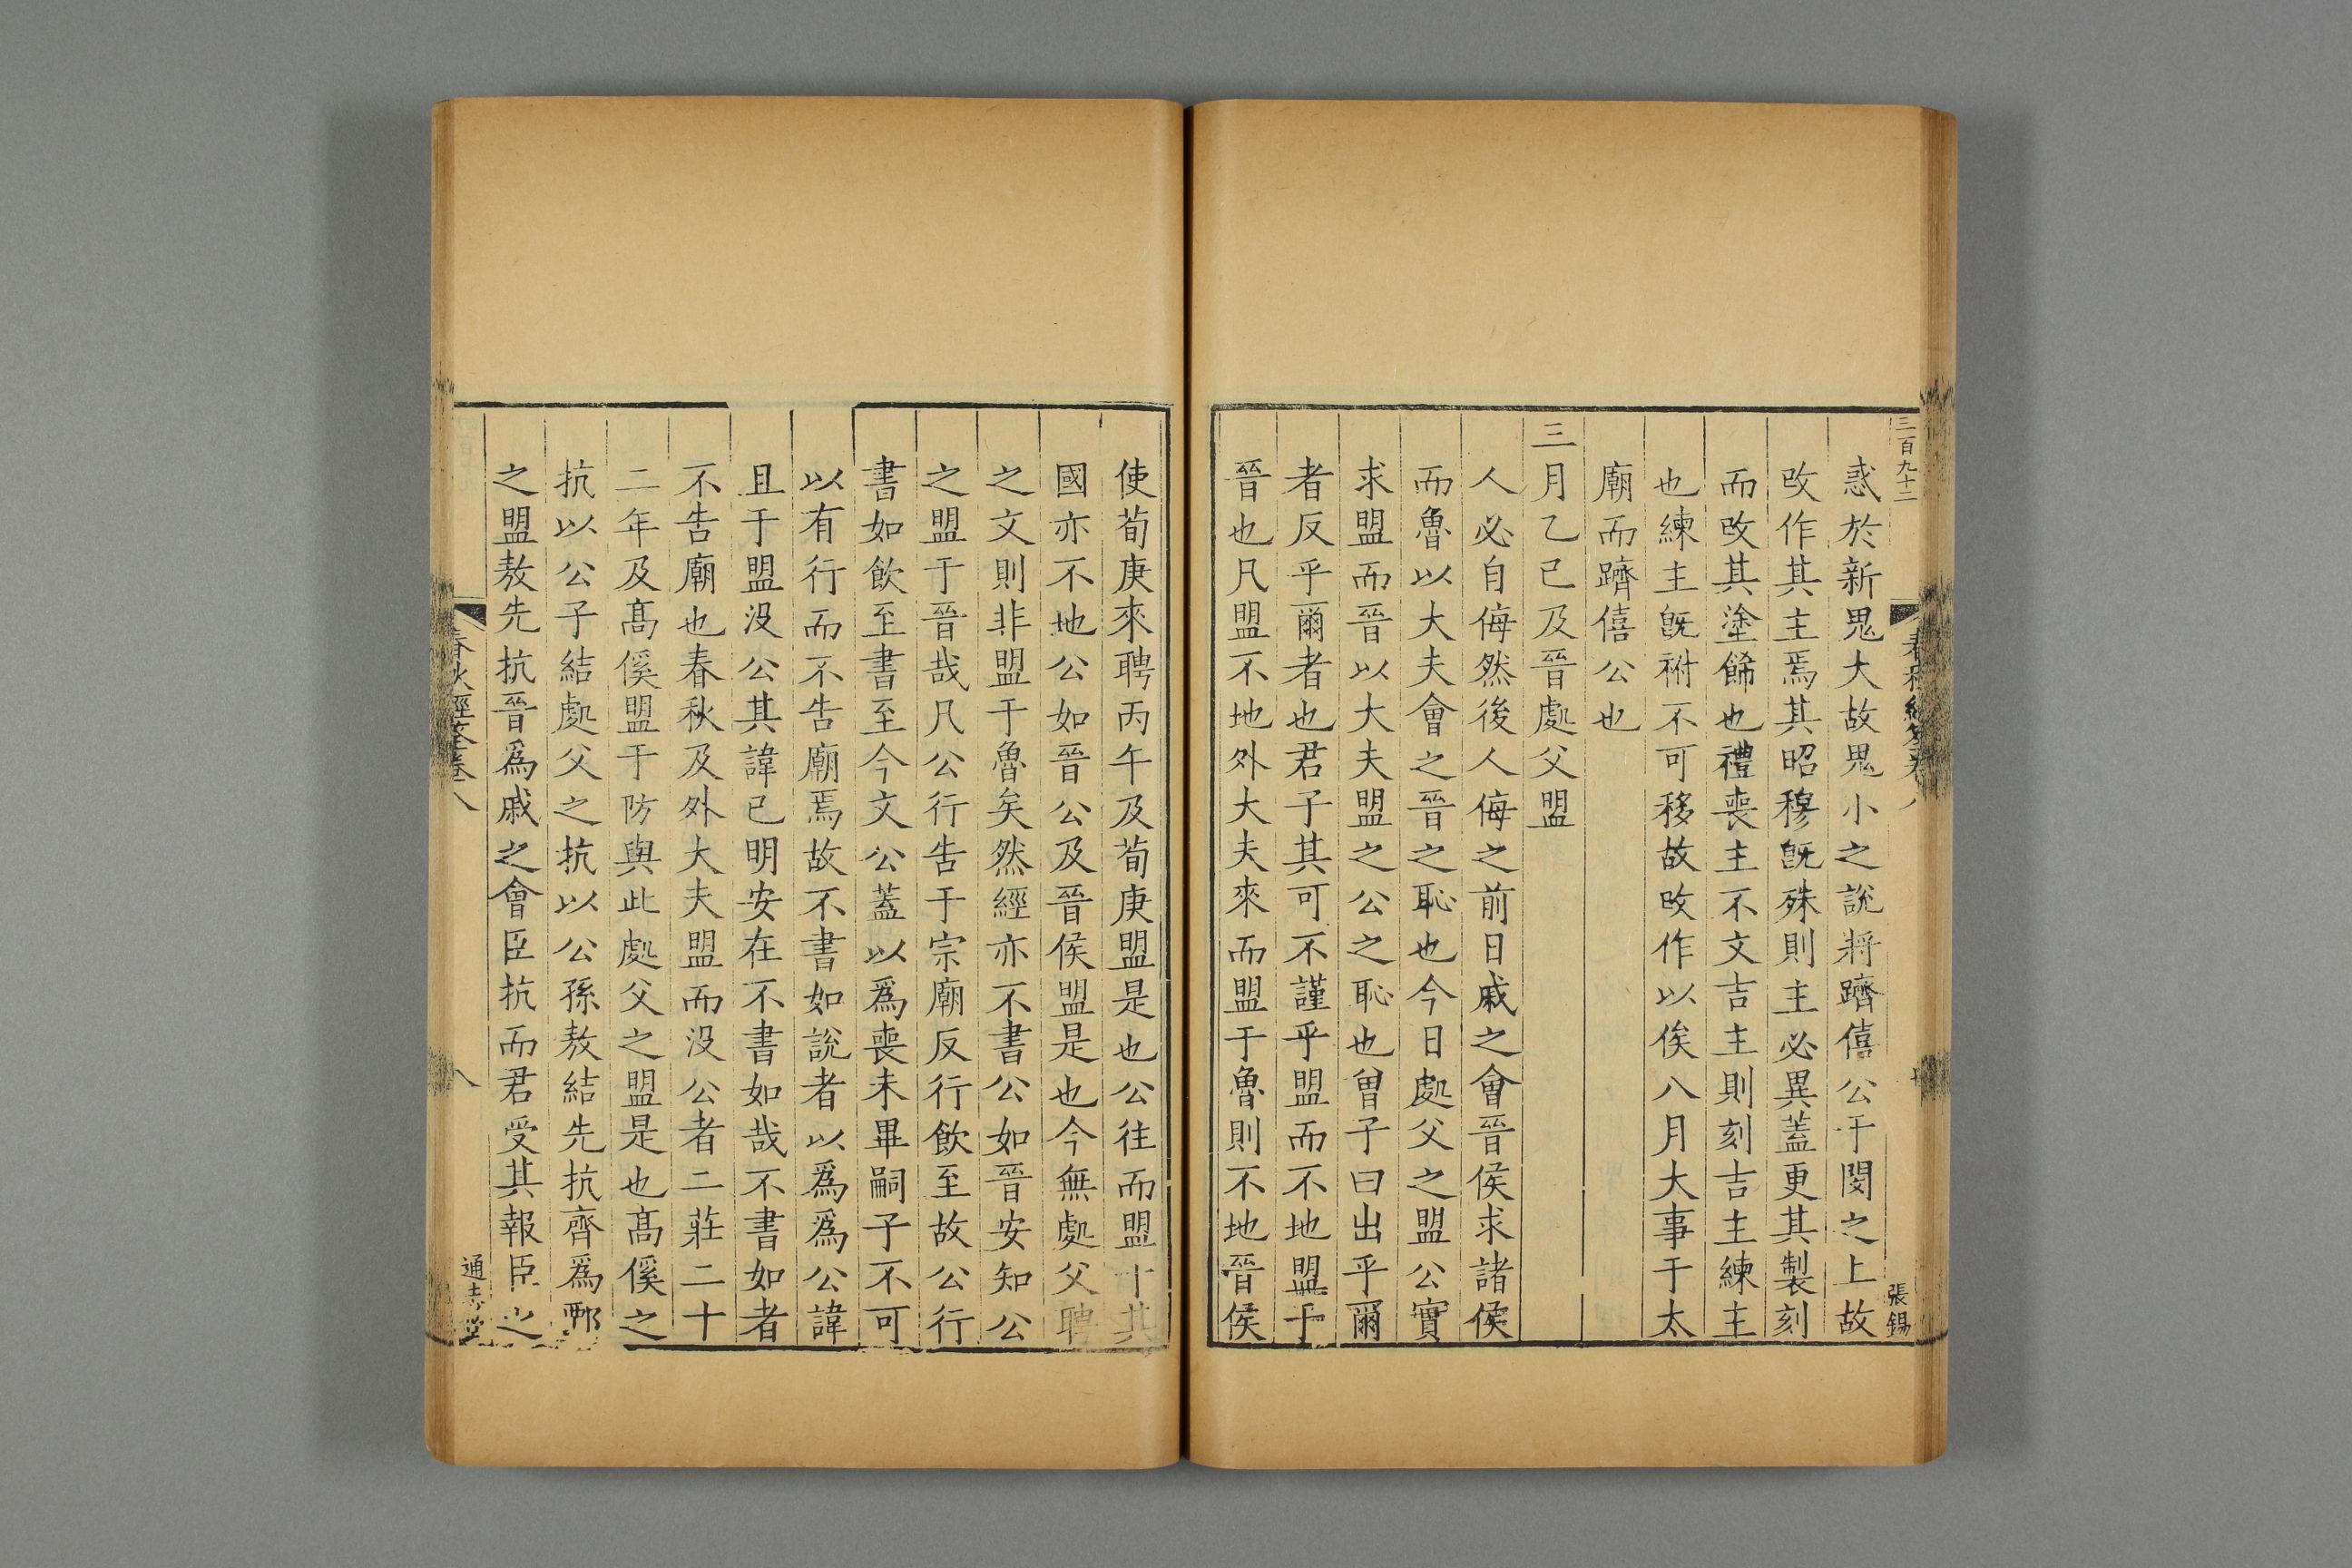 三百九十二
惑於新鬼大故鬼小之說將躋僖公于閔之上故
改作其主焉其昭穆旣殊則主必異蓋更其製刻
而改其塗餙也禮喪主不文吉主則刻吉主練主
也練主旣祔不可移故改作以俟八月大事于太
廟而躋僖公也
三月乙巳及晉處父盟
人必自侮然後人侮之前日戚之會晉侯求諸侯
而魯以大夫會之晉之恥也今日處父之盟公實
求盟而晉以大夫盟之公之恥也曾子曰出乎爾
者反乎爾者也君子其可不謹乎盟而不地盟于
晉也凡盟不地外大夫來而盟于魯則不地晉侯
張錫
使荀庚來聘丙午及荀庚盟是也公往而盟于其
國亦不地公如晉公及晉侯盟是也今無處父聘
之文則非盟于魯矣然經亦不書公如晉安知公
之盟于晉哉凡公行告于宗廟反行飲至故公行
書如飲至書至今文公蓋以爲喪未畢嗣子不可
以有行而不告廟焉故不書如說者以爲爲公諱
且于盟没公其諱已明安在不書如哉不書如者
不告廟也春秋及外大夫盟而没公者二莊二十
二年及髙傒盟于防與此處父之盟是也髙傒之
抗以公子結處父之抗以公孫敖結先抗齊爲鄄
之盟敖先抗晉爲戚之會臣抗而君受其報臣之
春秋經筌卷八
八
通志堂